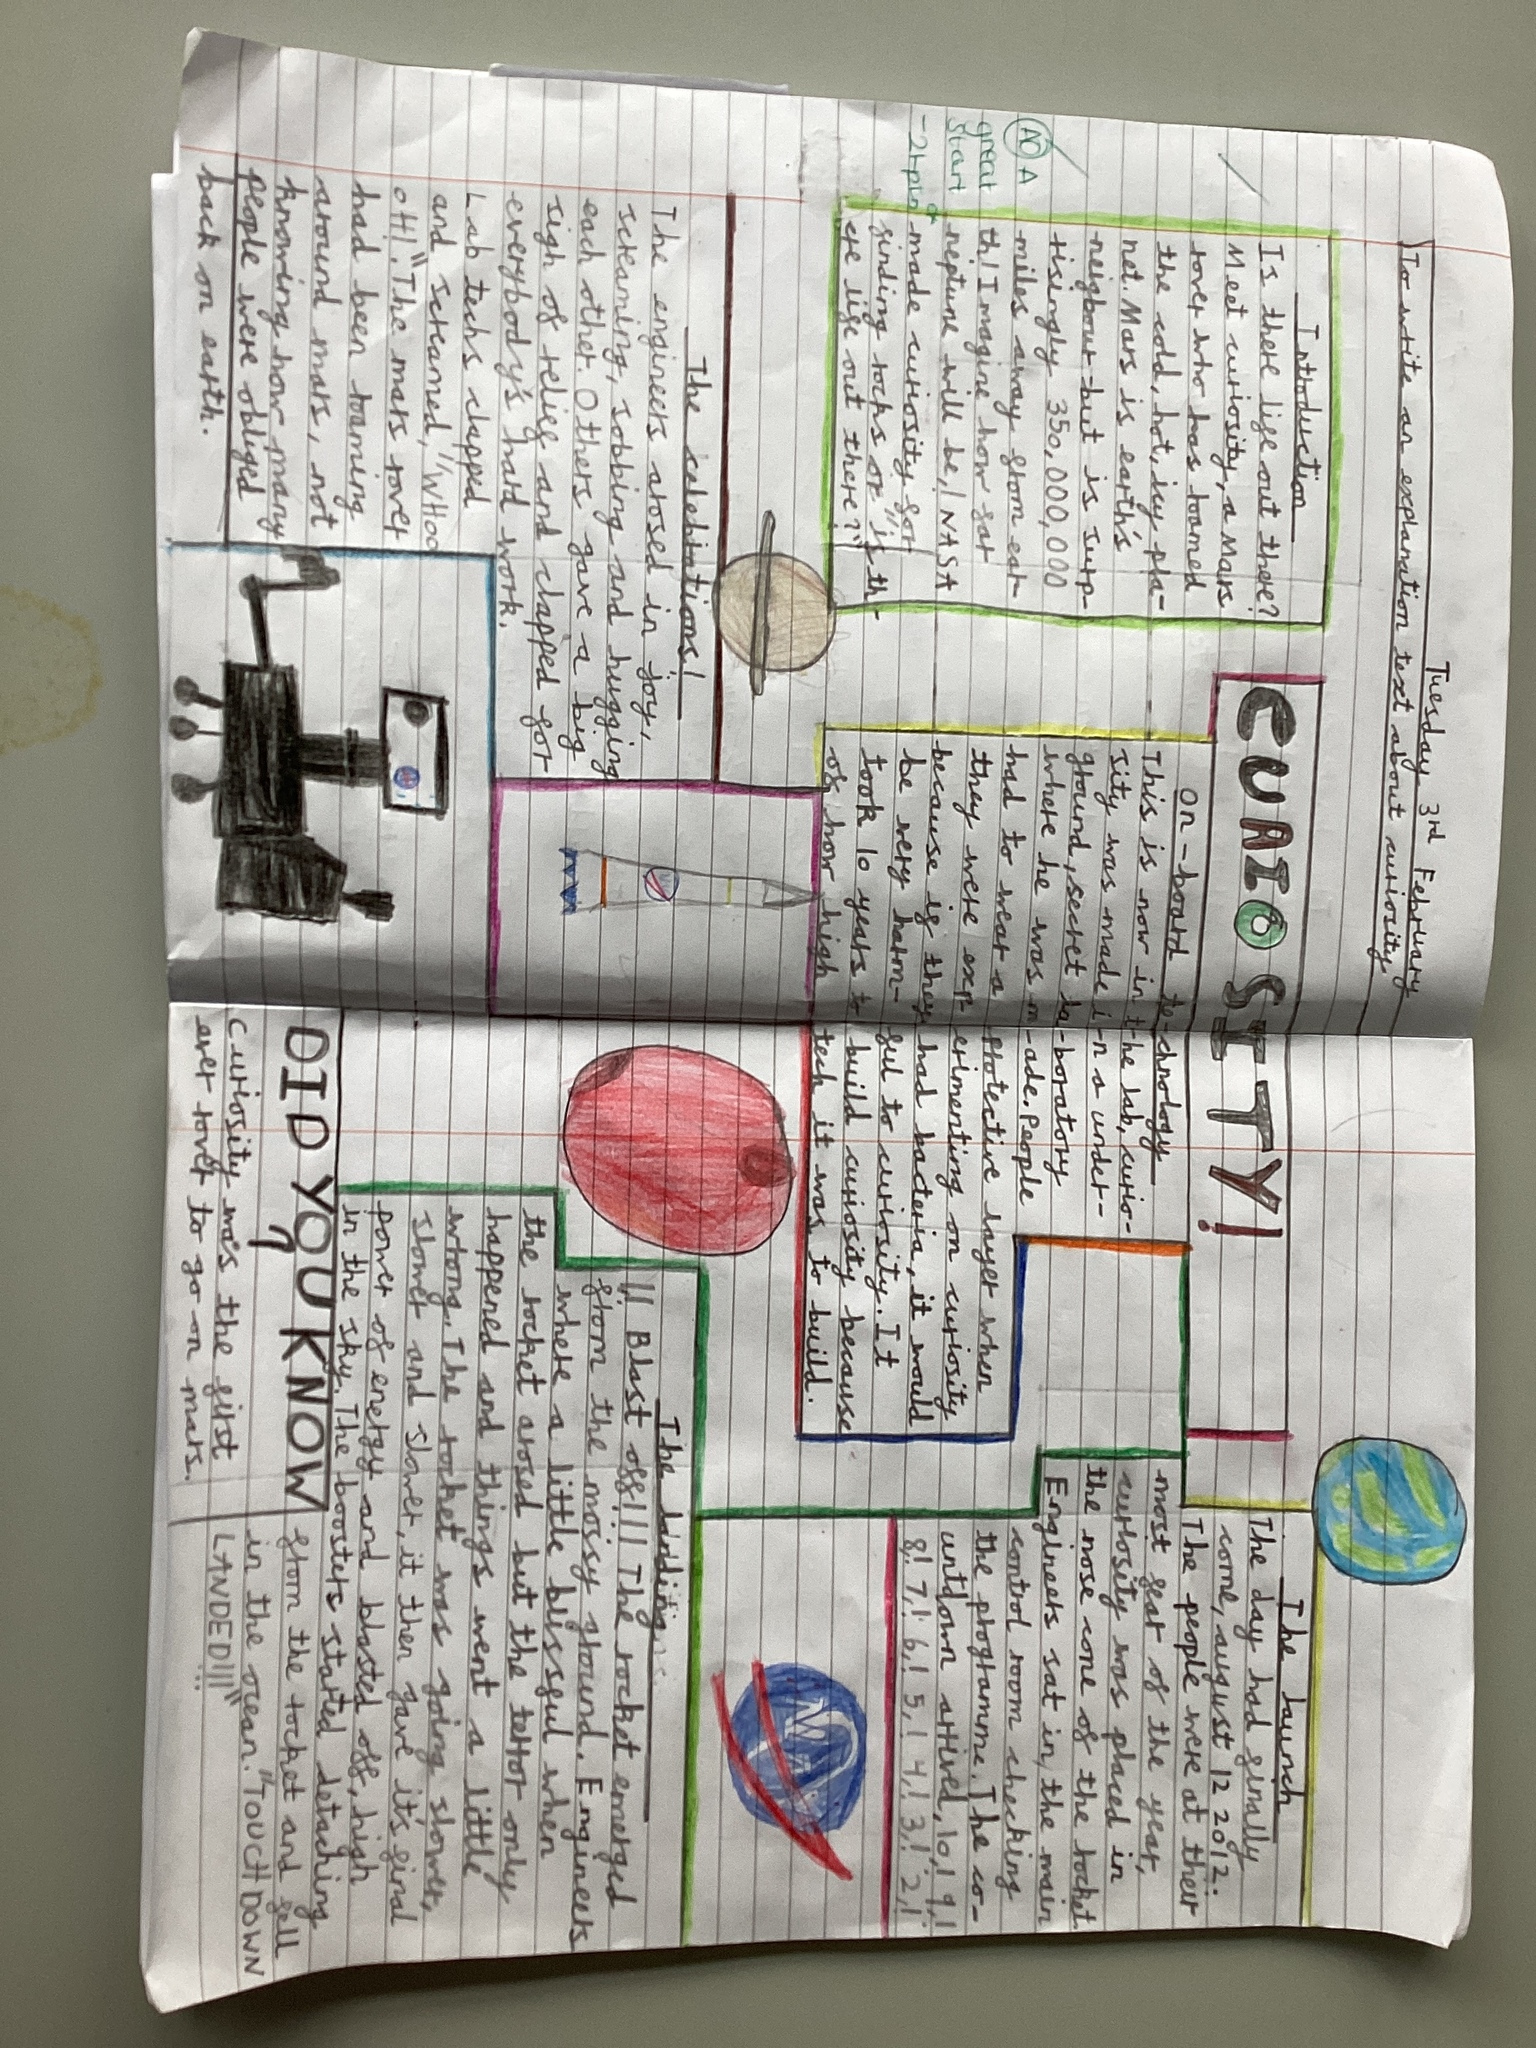 Tuesday 3rd February
To write an explanation text about curiosity
CURIOSITY!
Introduction
Is there life out there?
Meet curiosity, a Mars
rover who has roamed
the cold, hot, icy pla-
net. Mars is earth's
neigbour but is surp-
risingly 350,000,000
miles away from ear-
th! Imagine how far
neptune will be! NASA
made curiosity for
finding rocks or "is th-
ere life out there?"
AO A
great
start
On-board technology
This is now in the lab, curio-
sity was made i-n a under-
ground, secret la-boratory
where he was m-ade. People
had to wear a protective layer when
they were experimenting on curiosity
because if they had bacteria, it would
be very harm-ful to curiosity. It
took 10 years to build curiosity because
of how high tech it was to build.
The launch
The day had finally
come, august 12 2012.
The people were at their
most fear of the year,
curiosity was placed in
the nose cone of the rocket
Engineers sat in, the main
control room checking
the programme. The co-
untdown arrived, 10,! 9,!
8,! 7,! 6,! 5,! 4,! 3,! 2,!
The landing
1! Blast off!!! The rocket emerged
from the mossy ground. Engineers
where a little blissful when
the rocket arosed but the terror only
happened and things went a little
wrong. The rocket was going slower,
slower and slower, it then gave it's final
power of energy and blasted off, high
in the sky. The boosters started detaching
from the rocket and fell
in the ocean. "TOUCH DOWN
LANDED!!!"
The celebrations!
The engineers arosed in joy,
screaming, sobbing and hugging
each other. Others gave a big
sigh of relief and clapped for
everybody's hard work.
Lab techs clapped
and screamed, "WHOO
OH!" The mars rover
had been roaming
around mars, not
knowing how many
people were obliged
back on earth.
DID YOU KNOW
?
Curiosity was the first
ever rover to go on mars.